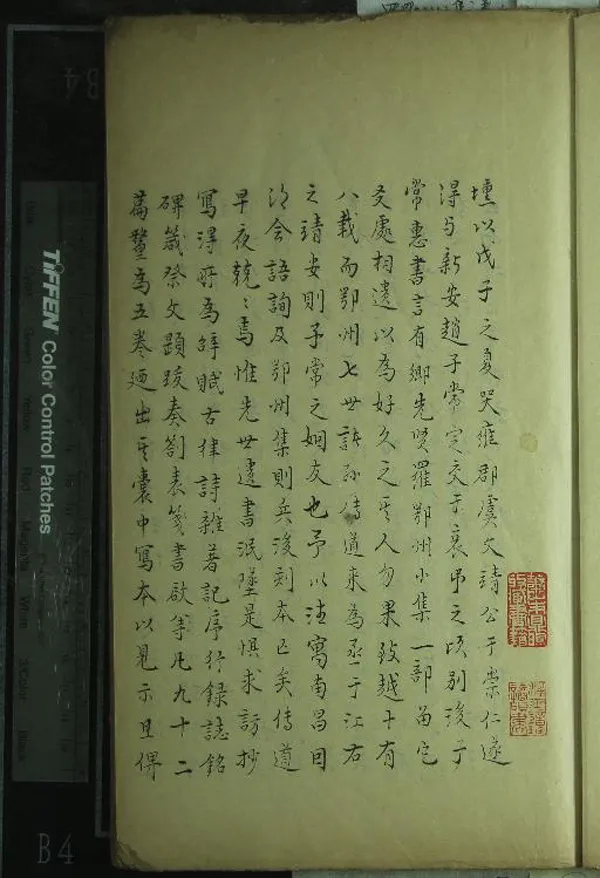 壎以戊子之夏哭雍郡虞文靖公于崇仁遂
淂与新安趙子常定交于哀吊之次別後丁
常惠書言有鄉先贤羅鄂州小集一部苗它
爻處相遺以為好久之其人勿果致越十有
八載而鄂州七世諸孫傳道來為丞于江右
之靖安則子常之姻友也予以法寓南昌因
淂会語詢及鄂州集則兵後刻本亡矣傳道
早夜兢〻焉惟先世遺書泯墜是惧求訪抄
寫淂所為辞賦古律詩雜著記序行録誌銘
碑箴祭文題跋奏劄表箋書啟等凡九十二
篇釐為五卷廼出其囊中寫本以見示且俾
TIFFEN Color Control Patches
B4